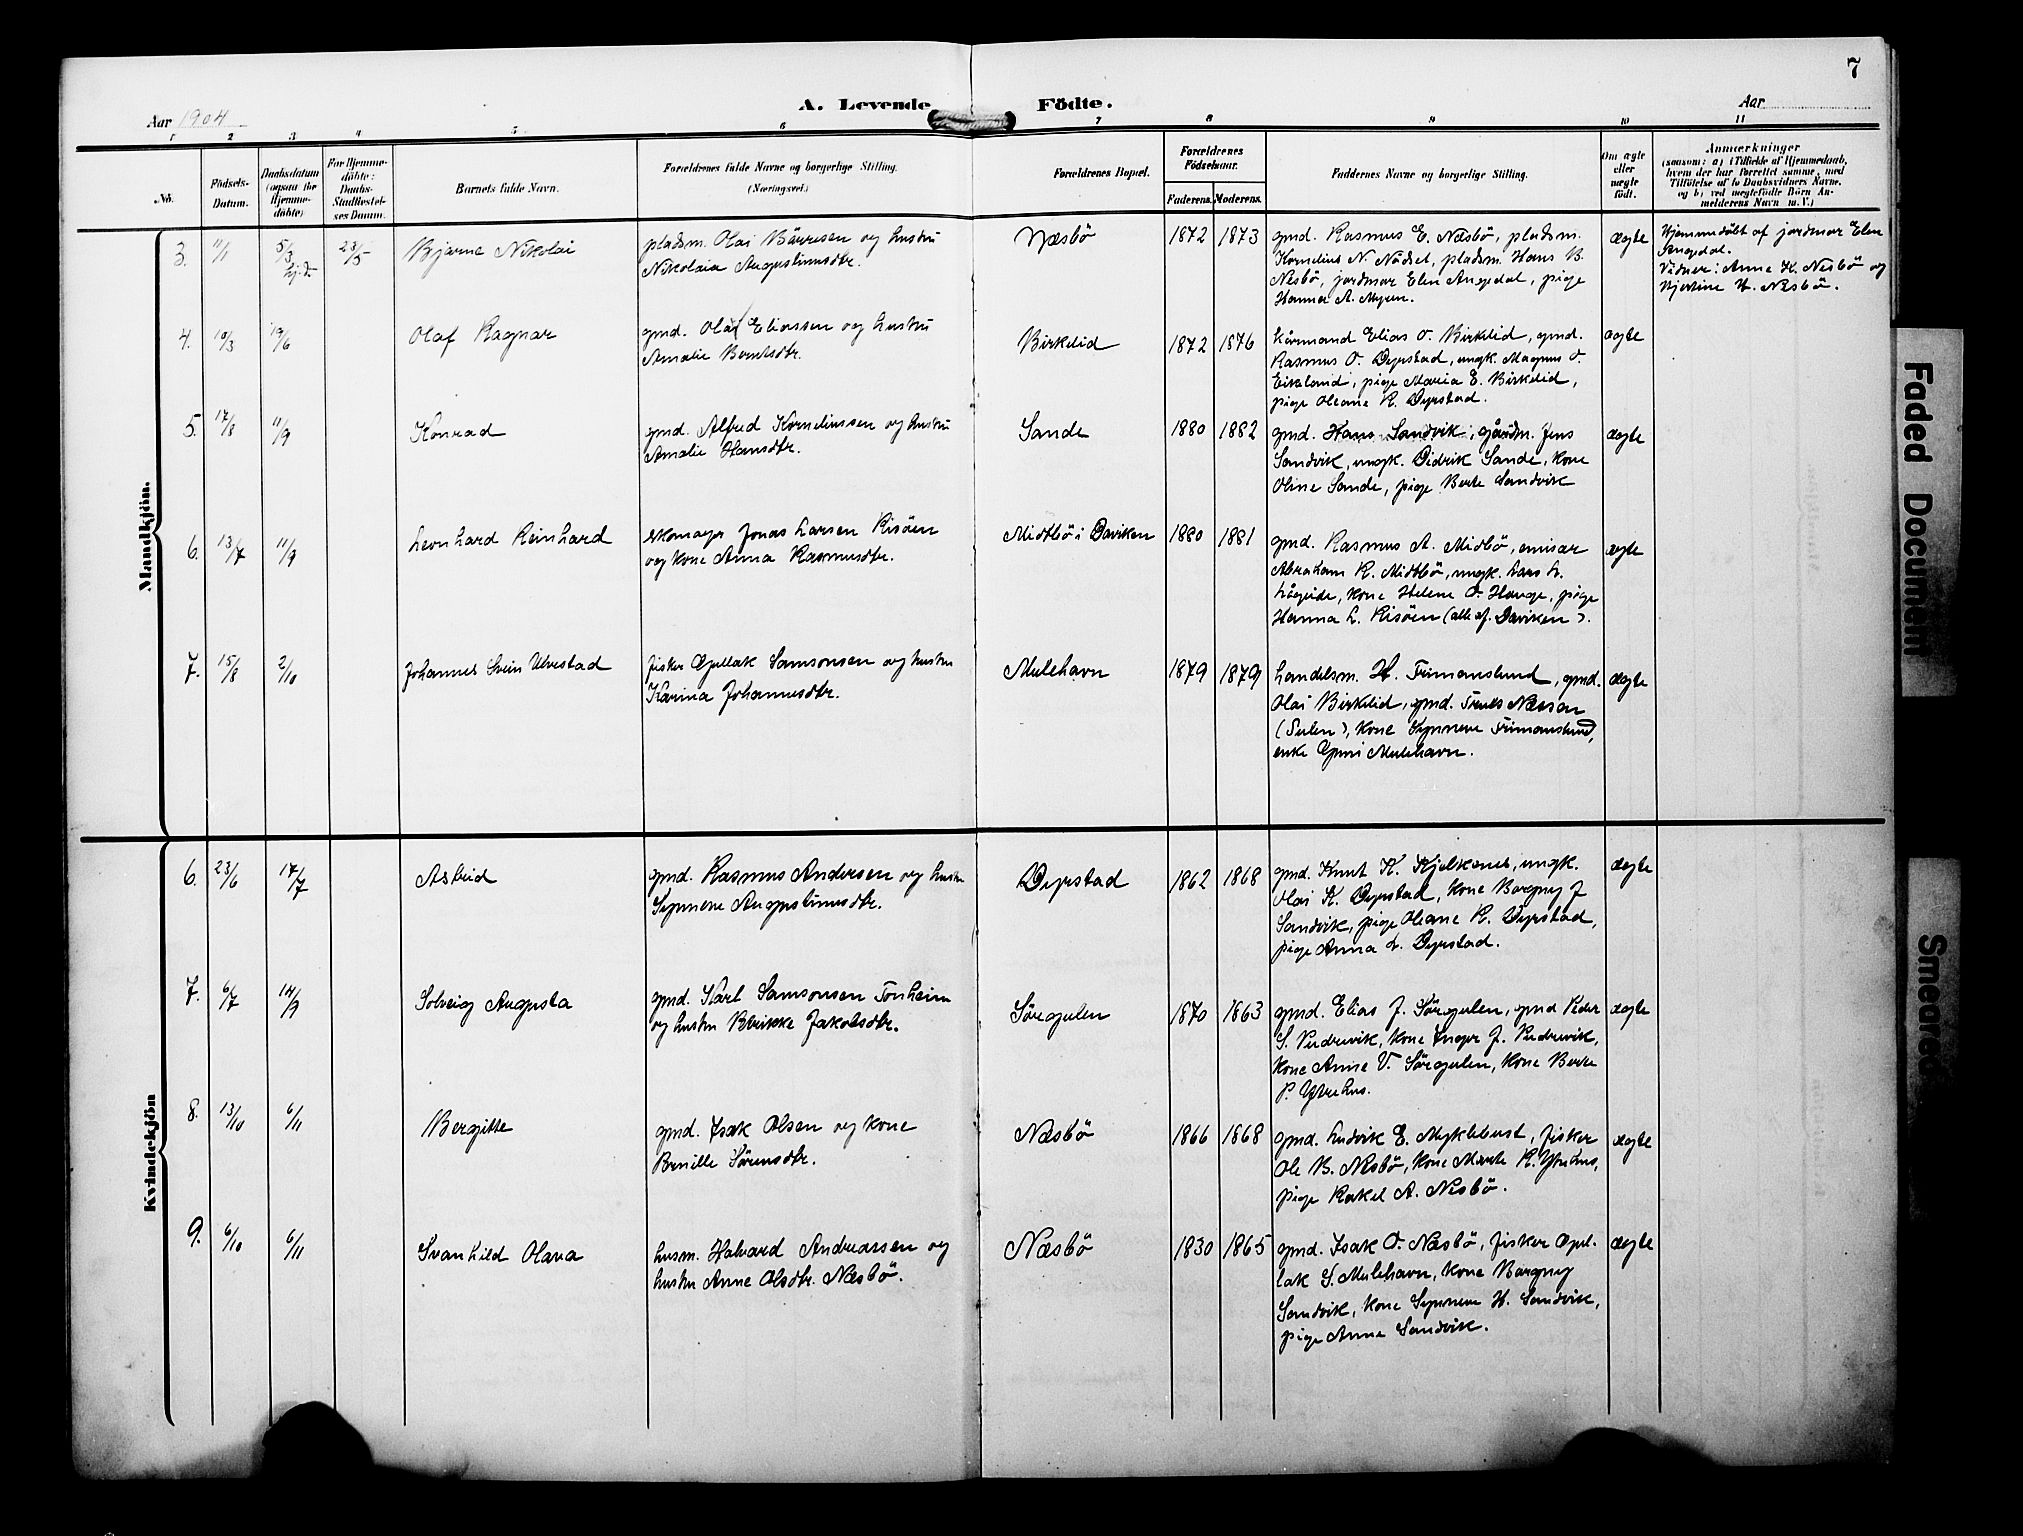 7
A. Levende Födte.
Aar 1904
Aar
1 2 3 4 5 6 7 8 9 10 11
No.
Födsels-Datum.
Daabsdatum (ogsaa for Hjemme-döbte).
For Hjemme-döbte: Daabs-Stadfæstel-ses Datum.
Barnets fulde Navn.
Forældrenes fulde Navne og borgerlige Stilling. (Næringsvei.)
Forældrenes Bopæl.
Forældrenes Födselsaar.
Faderens. Moderens.
Faddernes Navne og borgerlige Stilling.
Om ægte eller uægte födt.
Anmærkninger
(saasom: a) i Tilfælde af Hjemmedaab,
hvem der har forrettet samme, med
Tilföielse af to Daabsvidners Navne,
og b) ved uægtefödte Börn An-
melderens Navn m. V.)
Mandkjön.
3. 11/1 5/3 hj.d. 23/5 Bjarne Nikolai
pladsm. Olai Bårresen og hustru
Nikolaia Augustinusdtr.
Næsbö 1872 1873
gmd. Rasmus E. Næsbö, pladsm.
Kornelius N. Nödset, pladsm. Hans B.
Nesbö, jordmor Elen Angedal, pige
Hanna A. Myren.
ægte
Hjemmedöbt af jordmor Elen
Angedal.
Vidner: Anne K. Nesbö og
Hjertine H. Nesbö.
4. 10/3 19/6 Olaf Ragnar
gmd. Olai Eliassen og hustru
Amalie Berntsdtr.
Birkelid 1872 1876
kårmand Elias O. Birkelid, gmd.
Rasmus O. Dyrstad, ungk. Magnus O.
Eikeland, pige Maria E. Birkelid,
pige Oleane R. Dyrstad.
ægte
5. 17/8 11/9 Konrad
gmd. Alfred Korneliussen og hustru
Amalie Hansdtr.
Sande 1880 1882
gmd. Hans Sandvik, gårdm. Jens
Sandvik, ungk. Didrik Sande, kone
Oline Sande, pige Berte Sandvik
ægte
6. 13/7 11/9 Leonhard Reinhard
skomager Jonas Larsen Risöen
og kone Anna Rasmusdtr.
Midtbö i Daviken 1880 1881
gmd. Rasmus A. Midbö, emisær
Abraham R. Midtbö, ungk. Lars L.
Lågeide, kone Helene O. Hauge, pige
Hanna L. Risöen (alle af Daviken).
ægte
7. 15/8 2/10 Johannes Svein Ulvestad
fisker Gullak Samsonsen og hustru
Karina Johannesdtr.
Mulehavn 1879 1879
handelsm. H. Firmanslund, gmd.
Olai Birkelid, gmd. Truls Næsson
(Sulen), kone Synneve Firmanslund,
enke Guni Mulehavn.
ægte
Kvindekjön
6. 23/6 17/7 Astrid
gmd. Rasmus Andersen og hustru
Synneve Augustinusdtr.
Dyrstad 1862 1868
gmd. Knut K. Kjelkenes, ungk.
Olai K. Dyrstad, kone Borgny J
Sandvik, pige Oleane R. Dyrstad,
pige Anna L. Dyrstad.
ægte
7. 6/7 14/9 Solveig Augusta
gmd. Karl Samsonsen Tonheim
og hustru Birikke Jakobsdtr.
Söregulen 1870 1863
gmd. Elias J. Söregulen, gmd Peder
S. Pudrevik, kone Inger J. Pudrevik,
kone Anne V. Söregulen, kone Berte
P. Ytrehus.
ægte
8. 13/10 6/11 Bergitte
gmd. Isak Olsen og kone
Bernille Sörensdtr.
Næsbö 1866 1868
gmd. Ludvik E. Myklebust, fisker
Ole B. Nesbö, kone Marte R. Ytrehus,
pige Rakel A. Nesbö.
ægte
9. 6/10 6/11 Svanhild Olava
husm. Halvard Andreassen og
hustru Anne Olsdtr. Næsbö.
Næsbö 1830 1865
gmd. Isak O. Næsbö, fisker Gul-
lak S. Mulehavn, kone Borgny
Sandvik, kone Synneve H. Sandvik,
pige Anne Sandvik.
ægte
Faded Document
Smeared